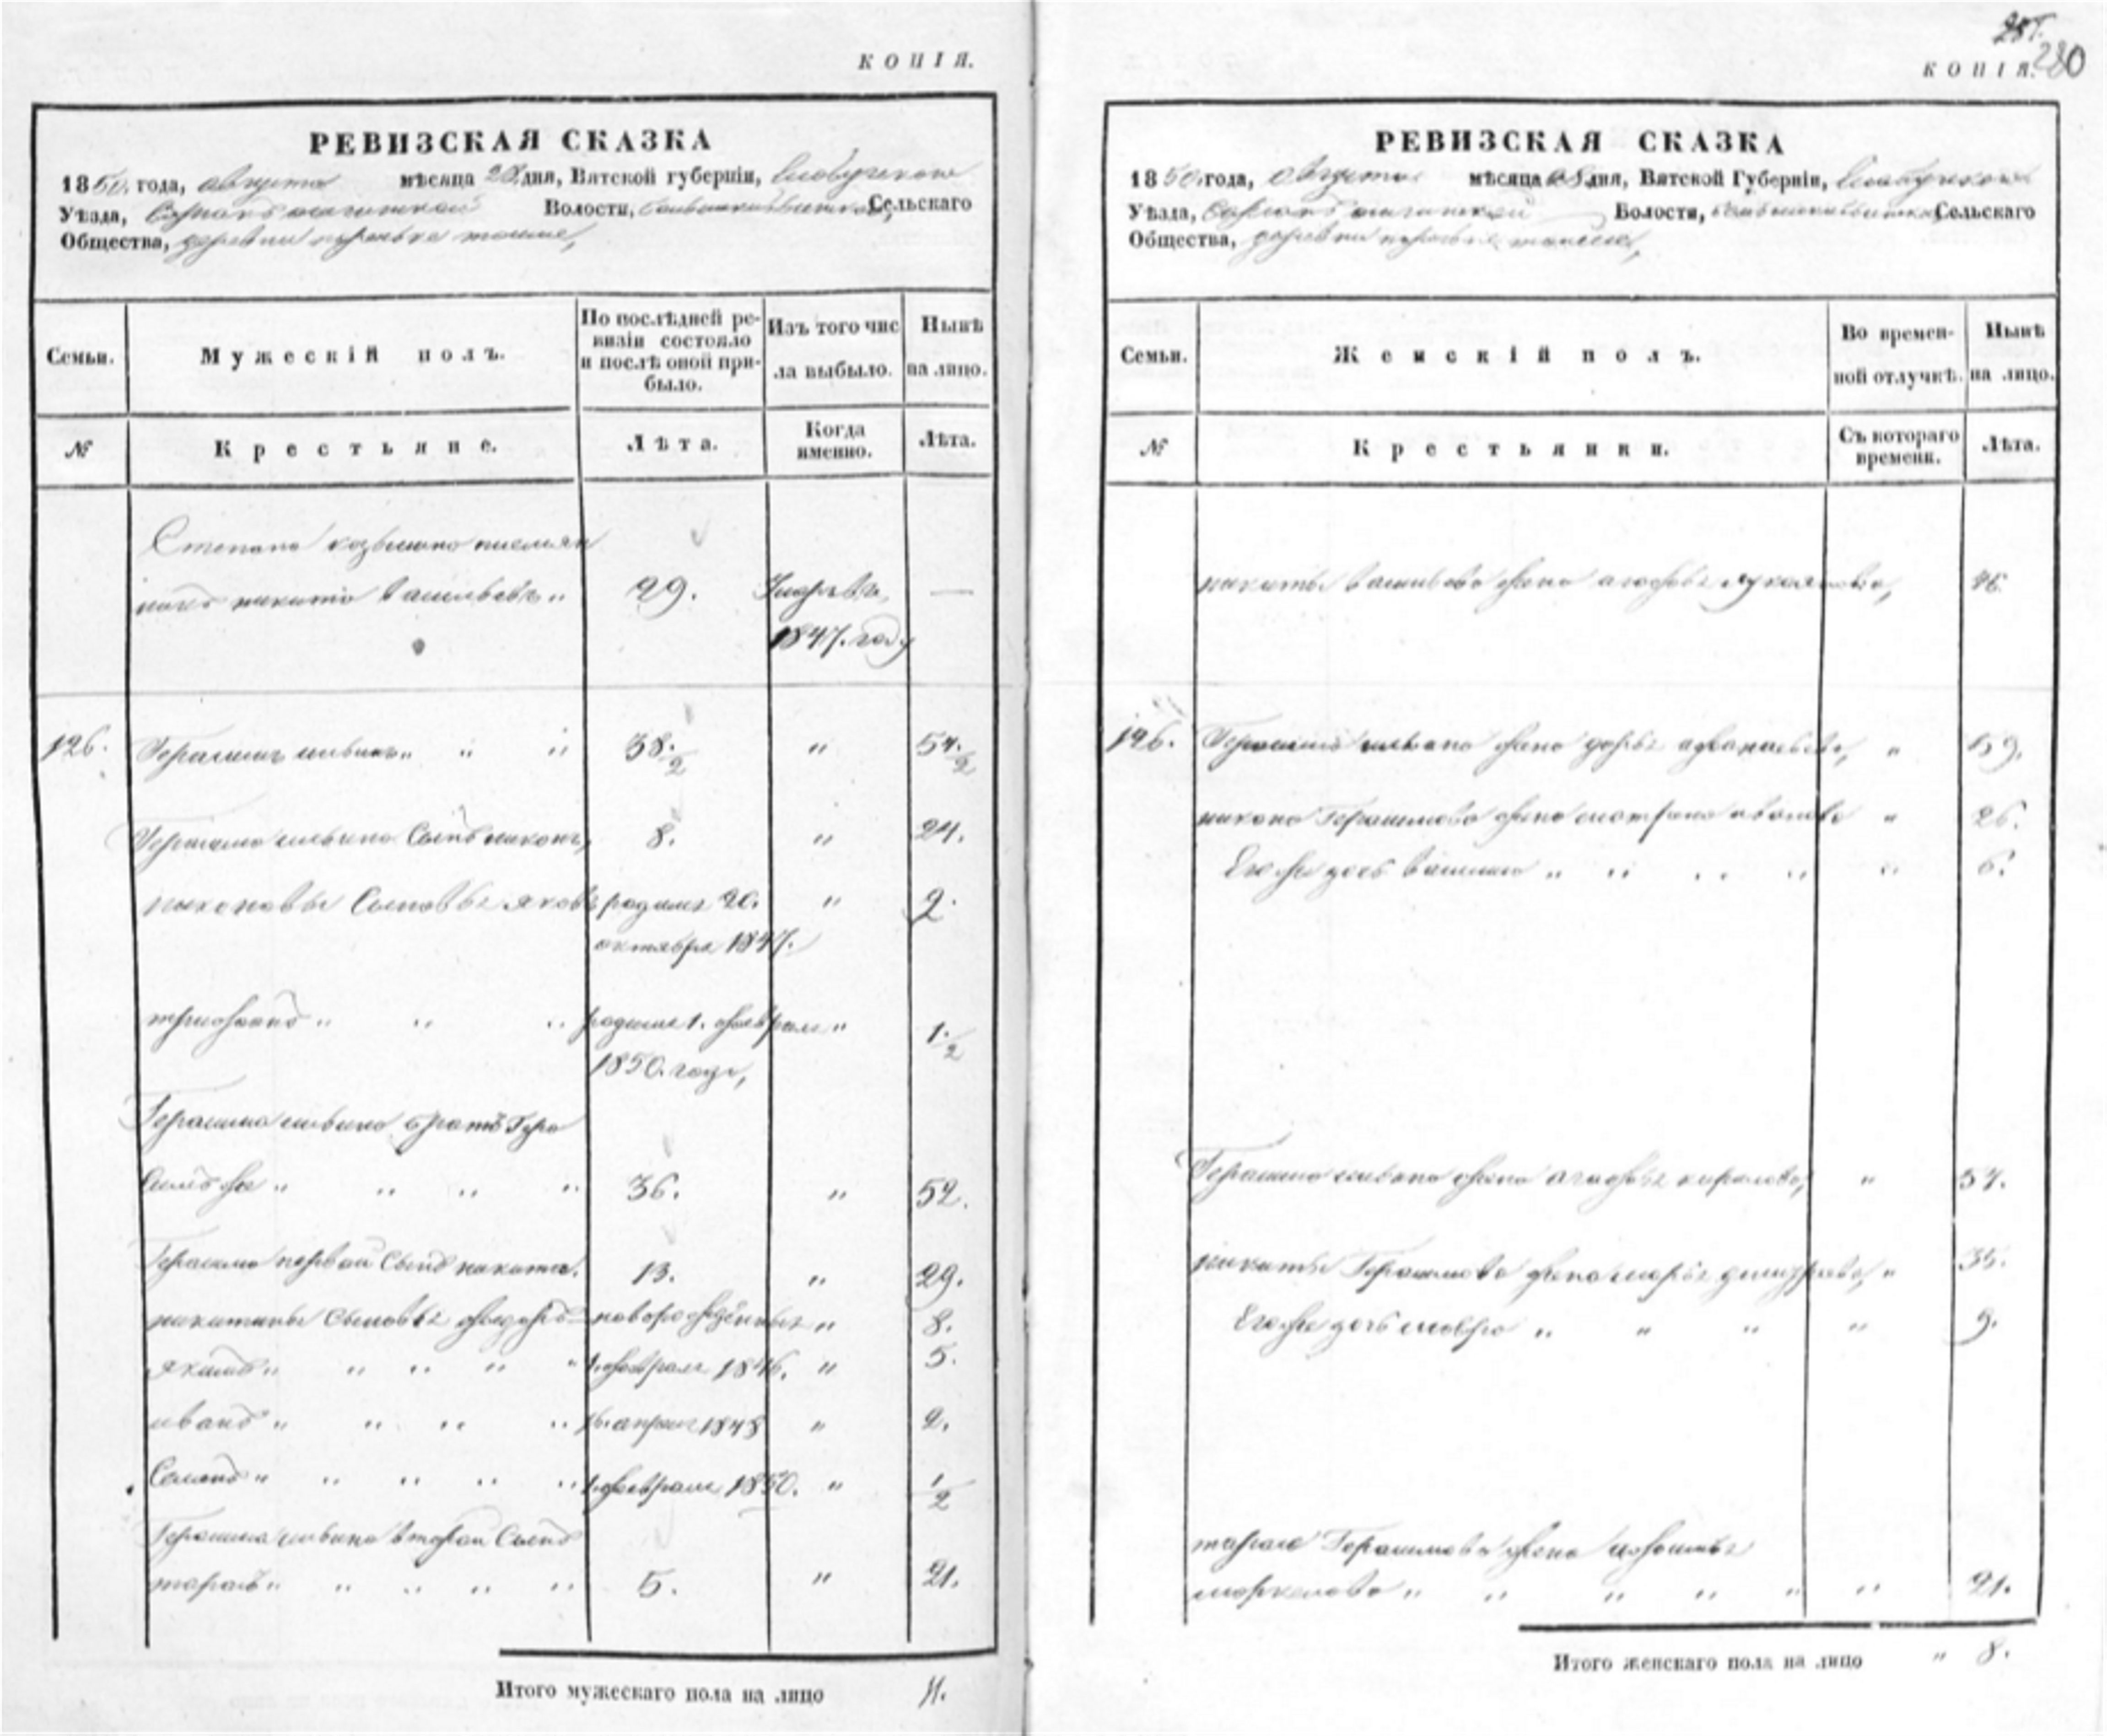 КОПІЯ.
РЕВИЗСКАЯ СКАЗКА
1850 года, августа мѣсяца 28 дня, Вятской губерніи,
Уѣзда, Волости, Сельскаго
Общества, деревни
Семьи.
Мужескій полъ.
По послѣдней ре-
визіи состояло
и послѣ оной при-
было.
Изъ того чис
ла выбыло.
Нынѣ
на лицо.
№
Крестьяне.
Лѣта.
Когда
именно.
Лѣта.
Степана племян
никъ никита васильевъ „ 29. —
1847. году
126. Герасимъ ильинъ „ „ „ 38. 1/2 „ 54. 1/2
Герасима ильина сынъ никонъ, 8. „ 24.
никоновы сыновья яковъ родился 20. „ 2.
октября 1847.
трифонъ „ „ „ родился 1. февраля „ 1. 1/2
1850. года,
Герасима ильина братъ Гера
симъ же „ „ „ „ 36. „ 52.
Герасима первой сынъ никита. 13. „ 29.
никитины сыновья федоръ новорожденный „ 8.
якимъ „ „ „ „ „ 1. февраля 1846. „ 5.
иванъ „ „ „ „ апреля 1848 „ 2.
Семенъ „ „ „ „ „ 1. февраля 1850. „ 1/2
Герасима ильина второй сынъ
тарасъ „ „ „ „ „ 5. „ 21.
Итого мужескаго пола на лицо 11.
280
КОПІЯ.
РЕВИЗСКАЯ СКАЗКА
1850 года, августа мѣсяца 28 дня, Вятской Губерніи,
Уѣзда, Волости, Сельскаго
Общества, деревни
Семьи.
Женскій полъ.
Во времен-
ной отлучкѣ.
Нынѣ
на лицо.
№
Крестьянки.
Съ котораго
времени.
Лѣта.
никиты васильева жена лукоянова, 46.
126. Герасима ильина жена дарья „ 59.
никона Герасимова жена иванова „ 26.
Его же дочь „ „ „ „ „ 6.
Герасима ильина жена агафья кирилова, „ 57.
никиты Герасимова жена марья „ 35.
Его же дочь мавра „ „ „ „ 9.
тараса Герасимова жена
маркелова „ „ „ „ „ „ 21.
Итого женскаго пола на лицо „ 8.